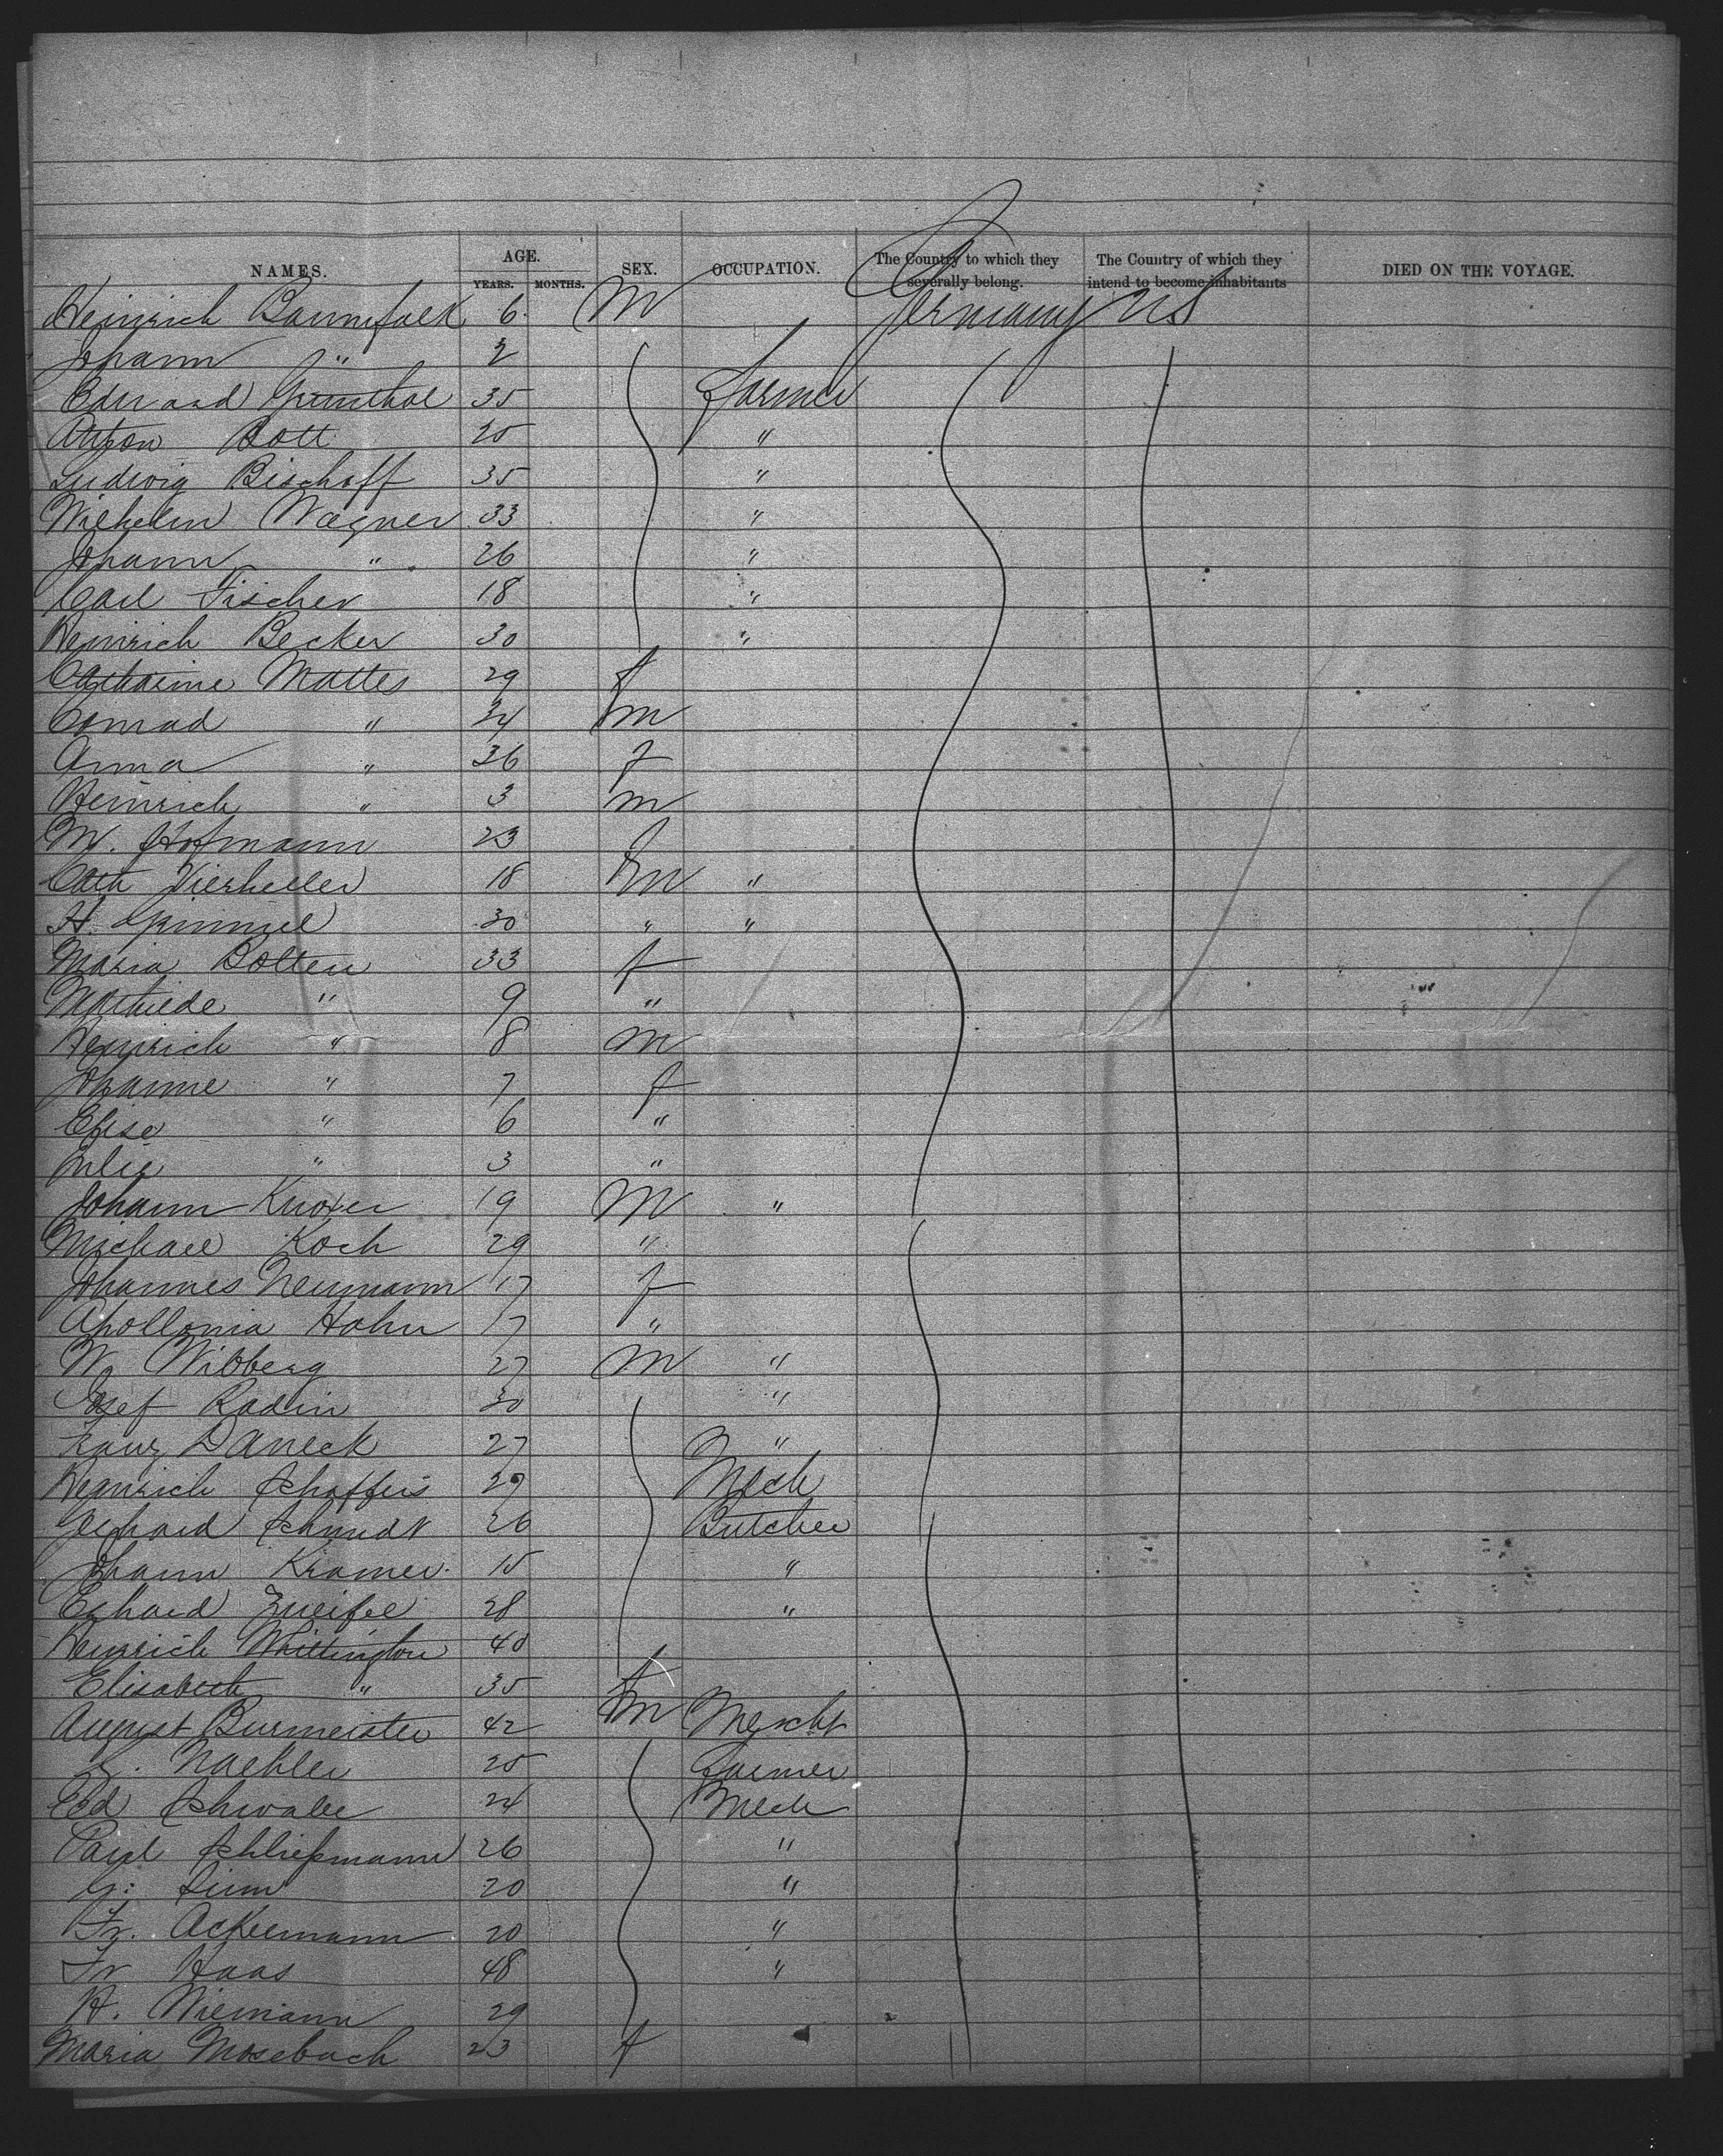 NAMES. AGE. YEARS. MONTHS. SEX. OCCUPATION. The Country to which they severally belong. The Country of which they intend to become inhabitants DIED ON THE VOYAGE.
Heinrich 6 M Germany US
Johann " 2
Eduard Grünthal 35 Farmer
Anton Bott 25 "
Ludwig Bischoff 35 "
Wilhelm Wagner 33 "
Johann " 26 "
Carl Fischer 18 "
Heinrich Becker 30 "
Catharine Mattes 29 f
Conrad " 34 m
Anna " 36 f
Heinrich " 3 m
M. Hofmann 23 f
Cath Vierheller 18 m "
H. 30 " "
Maria Bolten 33 f
Mathilde " 9 "
Heinrich " 8 m
Johanne " 7 f
Elise " 6 "
Julie " 3 "
Johann 19 M "
Michael Koch 29 "
Johannes Neumann 17 f
Apollonia Hohn 17 "
W. Wibberg 27 M "
Josef Radin 30 "
Franz Daneck 27 "
Heinrich 29 Mech
Gerhard Schmidt 26 Butcher
Johann Kramer 15 "
Erhard Zweifel 28 "
Heinrich Whittington 40
Elisabeth " 35 f
August Burmeister 42 m Mercht
Naehler 25 Farmer
Ed Schwabe 24 Mech
Paul Schliepmann 26 "
G. 20 "
Fr. Ackermann 20 "
Fr Haas 48 "
H. Niemann 29
Maria Mosebach 23 f